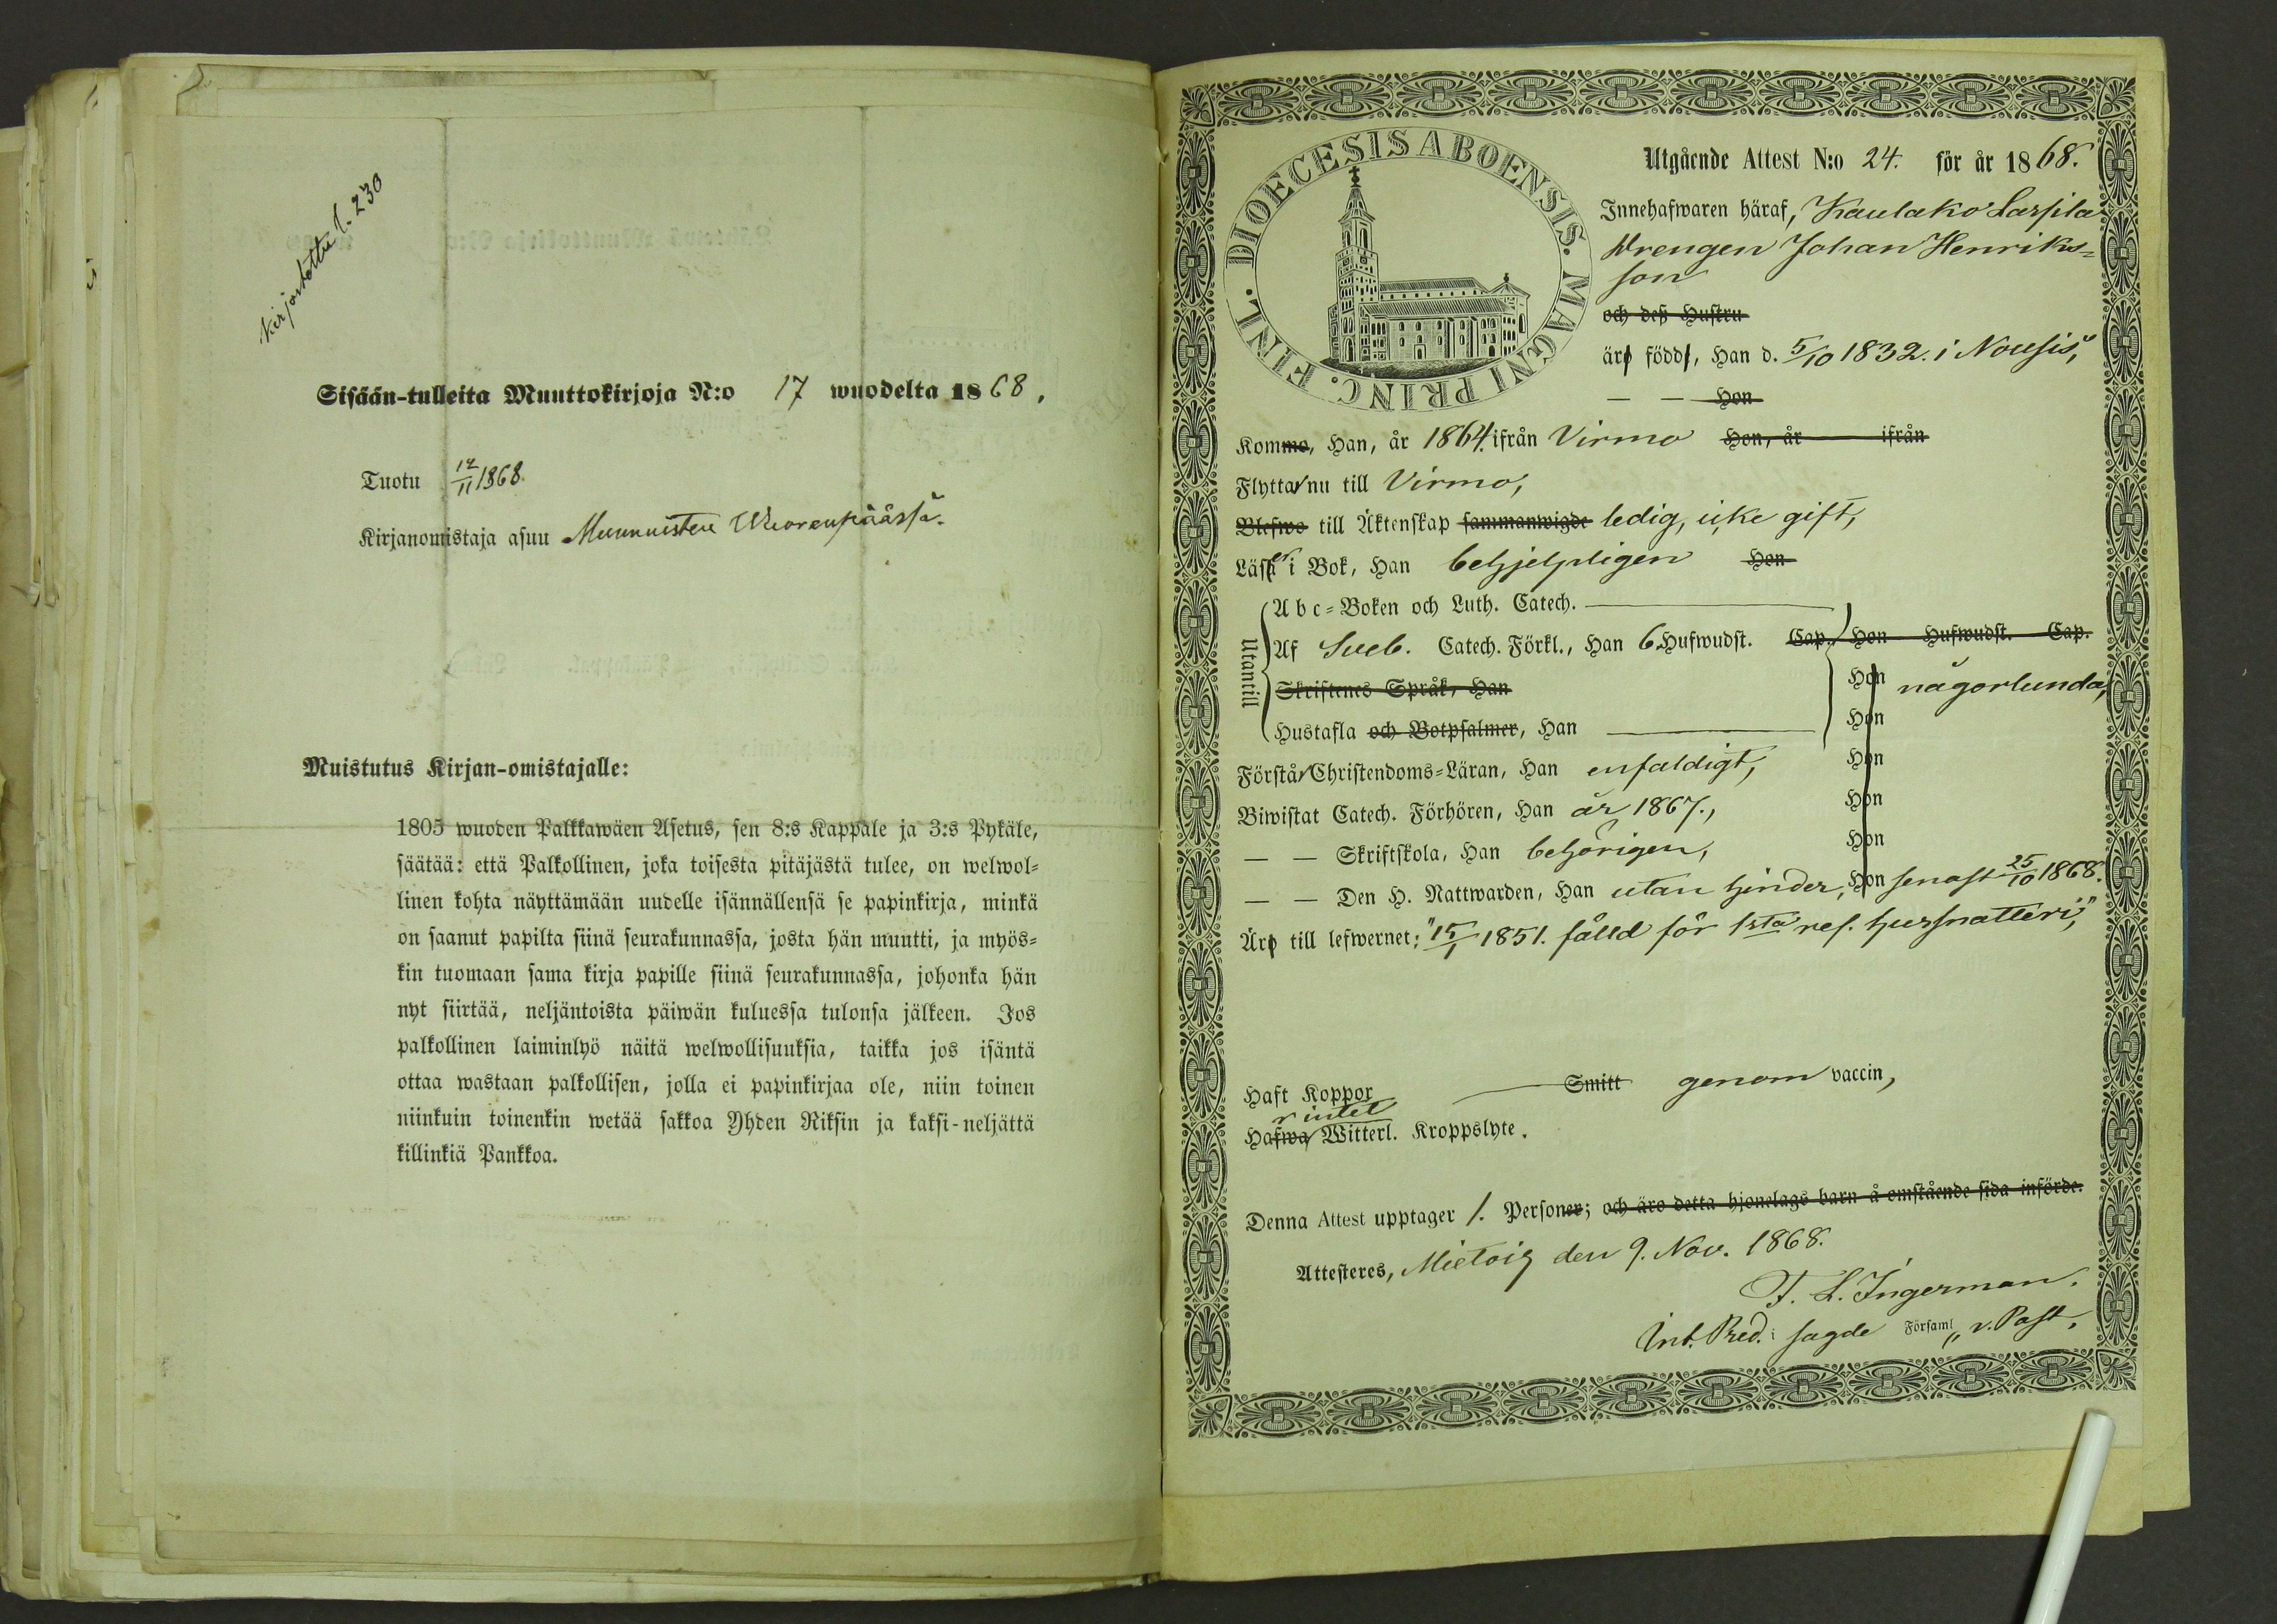 kirjoitettu l. 230
Sisään-tulleita Muuttokirjoja N:o 17 wuodelta 1868.
Tuotu 14/11 1868.
Kirjanomistaja asuu Munnisten Wuorenpäässä.
Muistutus Kirjan-omistajalle:
1805 wuoden Palkkawäen Asetus, sen 8:s Kappale ja 3:s Pykäle,
säätää: että Palkollinen, joka toisesta pitäjästä tulee, on welwol-
linen kohta näyttämään uudelle isännällensä se papinkirja, minkä
on saanut papilta siinä seurakunnassa, josta hän muutti, ja myös-
kin tuomaan sama kirja papille siinä seurakunnassa, johonka hän
nyt siirtää, neljäntoista päiwän kuluessa tulonsa jälkeen. Jos
palkollinen laiminlyö näitä welwollisuuksia, taikka jos isäntä
ottaa wastaan palkollisen, jolla ei papinkirjaa ole, niin toinen
niinkuin toinenkin wetää sakkoa Yhden Riksin ja kaksi-neljättä
killinkiä Pankkoa.
DIOECESIS ABOENSIS. MAGNI PRINC. FINL.
Utgående Attest N:o 24. för år 1868.
Innehafwaren häraf, Kaulako Laspila
Drengen Johan Henriks=
son
och deß Hustru
äro född, Han d. 5/10 1832. i Nousis,
— — Hon
Kommo, Han, år 1864. ifrån Virmo Hon, år ifrån
Flytta nu till Virmo,
Blefwo till Äktenskap sammanwigde ledig, icke gift,
Läser i Bok, Han behjelpligen Hon
Utantill
Abc-Boken och Luth. Catech.
Af Sveb. Catech. Förkl., Han 6. Hufwudst. Cap. Hon Hufwudst. Cap.
Skriftenes Språk, Han Hon någorlunda,
Hustafla och Botpsalmer, Han Hon
Förstår Christendoms-Läran, Han enfaldigt, Hon
Biwistat Catech. Förhören, Han år 1867., Hon
— — Skriftskola, Han behörigen, Hon
— — Den H. Nattwarden, Han utan hinder, Hon senast 25/10 1868.
Äro till lefwernet: "15/1 1851. fälld för 1sta res. hussnatteri,"
Haft Koppor Smitt genom vaccin,
r intet
Hafwa Witterl. Kroppslyte.
Denna Attest upptager 1. Personer; och äro detta hjonelags barn å omstående sida införde.
Attesteres, Mietois den 9. Nov. 1868.
F. L. Ingerman.
Int. Pred. i sagde Församl „ v. Past.